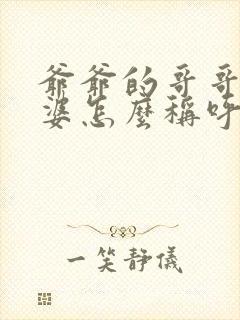 爺爺的哥哥
婆怎麼稱呼
一笑靜儀